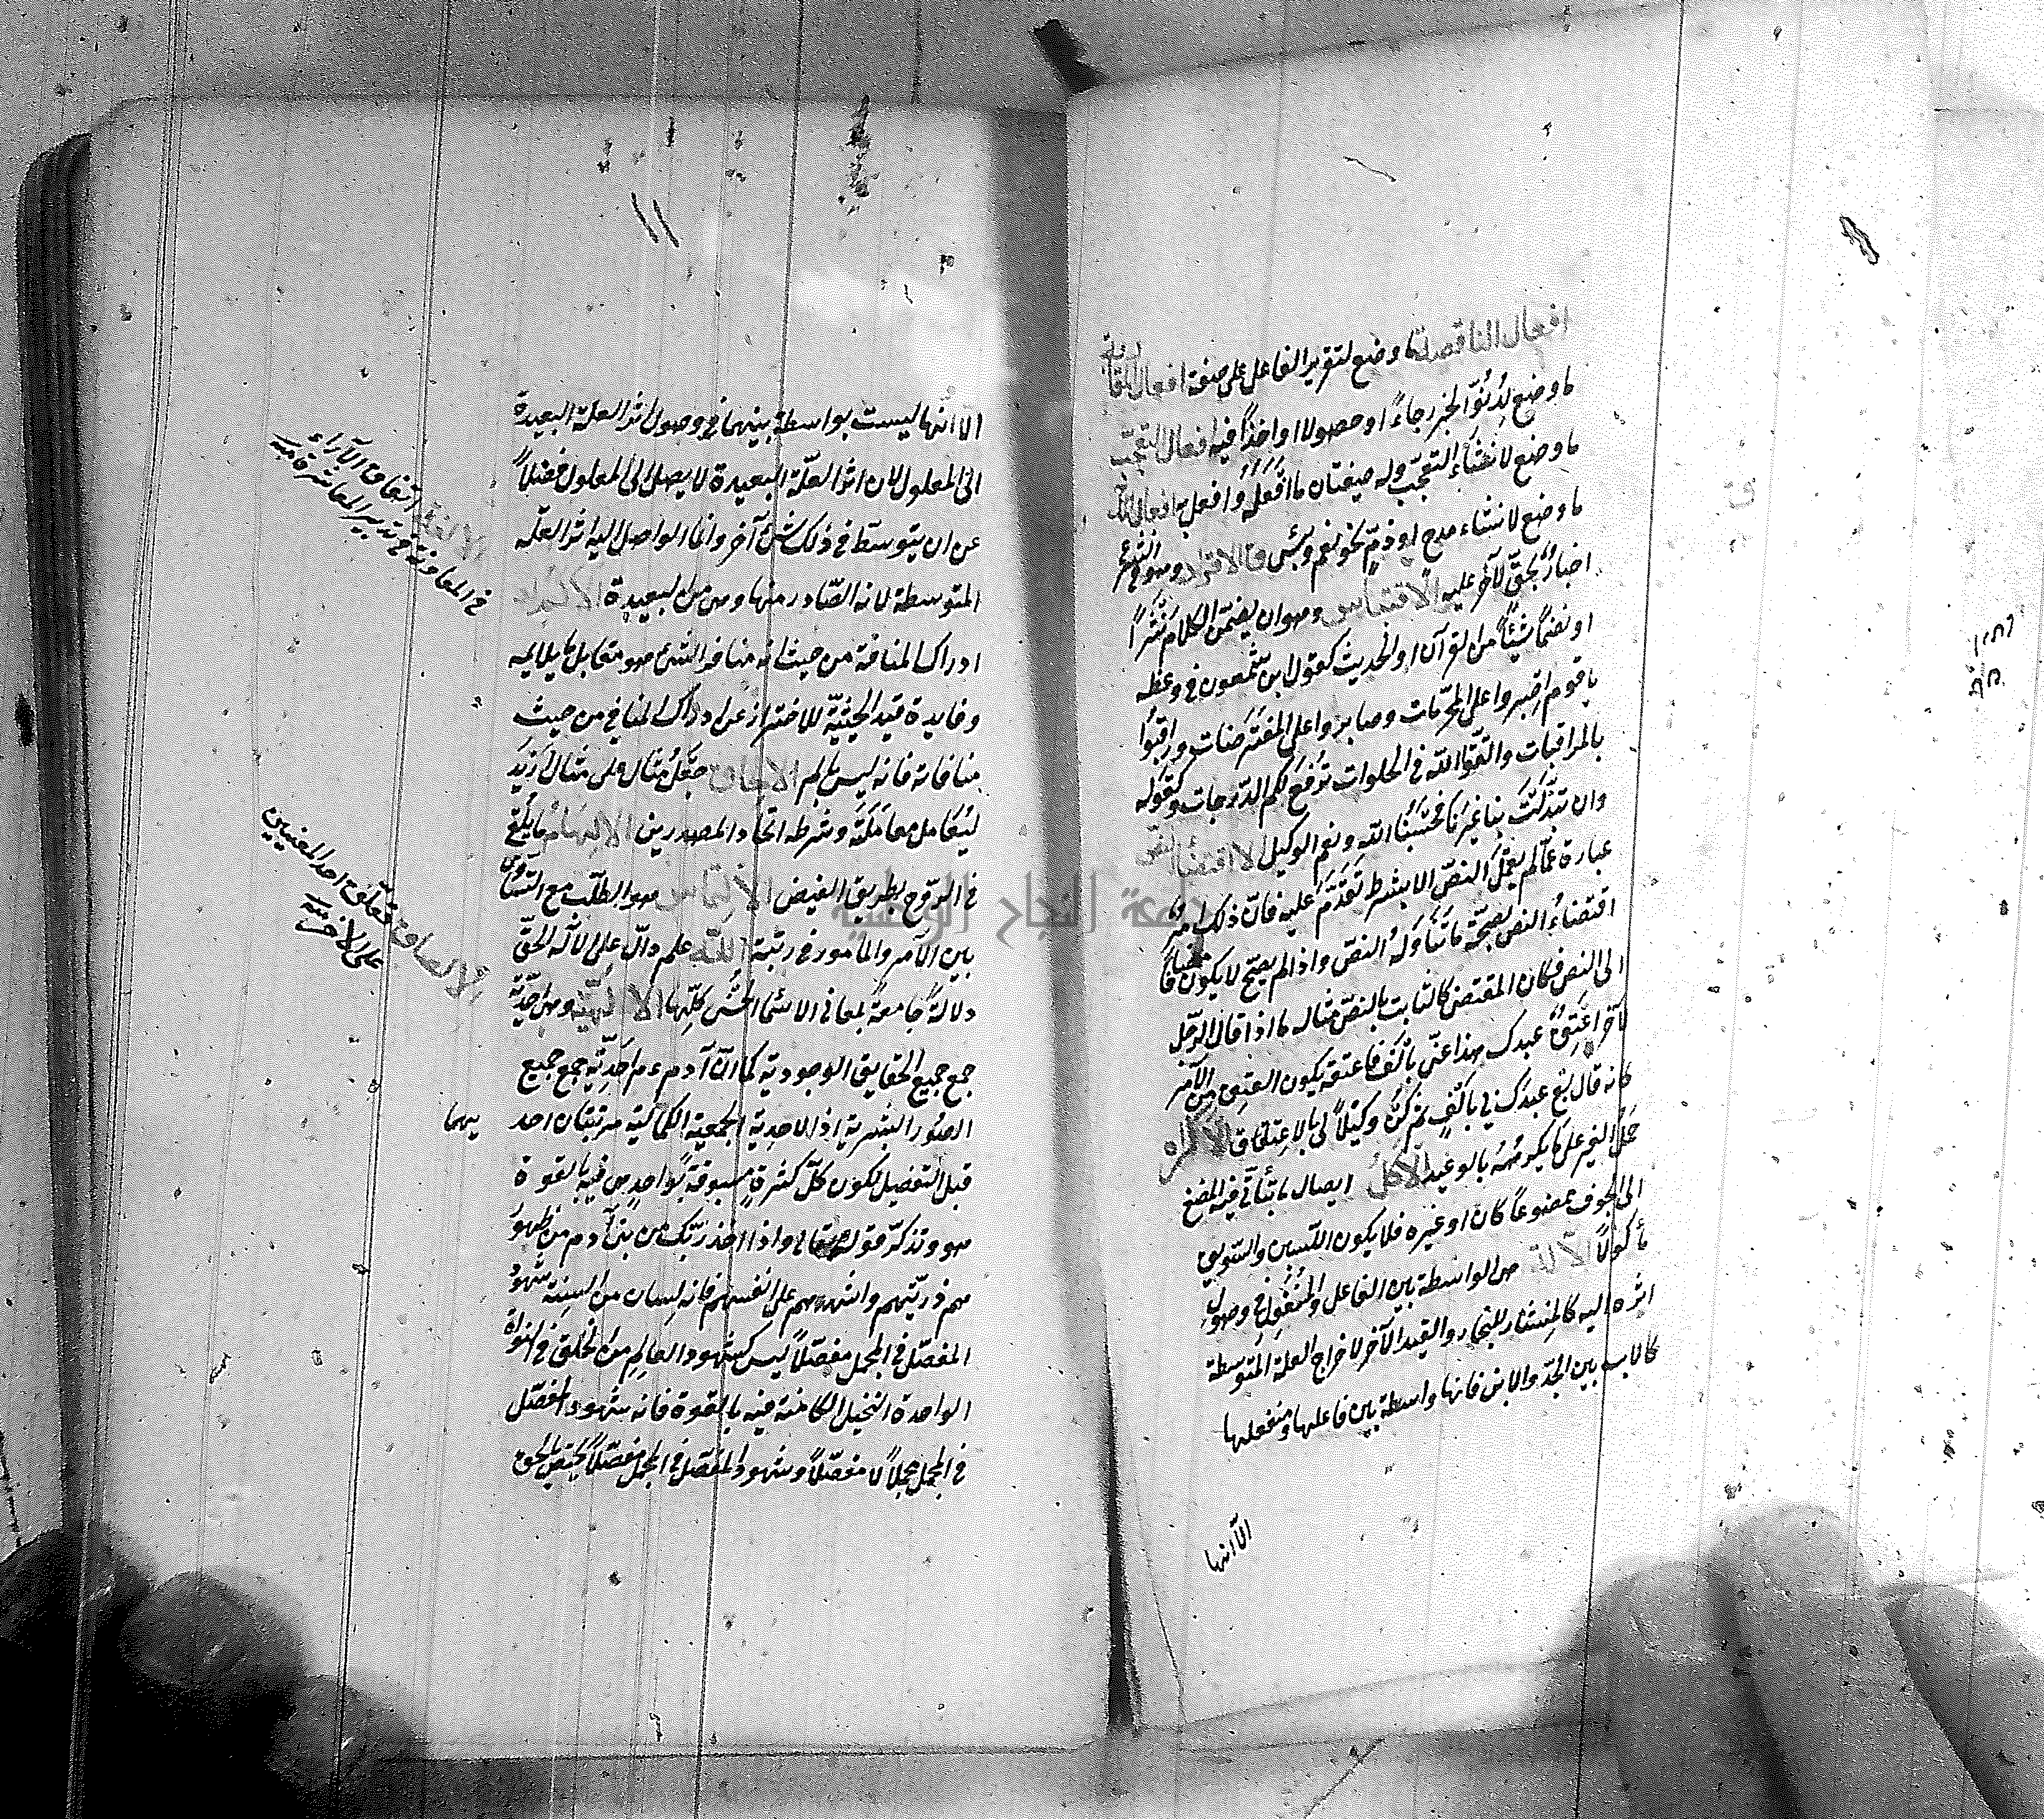 افعال الناقصة ما وضع لتقرير الفاعل على صفة افعال المقاربة
ما وضع لدنوّ الخبر رجاءً او حصولا او اخذًا فيه افعال التعجّب
ما وضع لانشاء التعجّب وله صيغتان ما افعله وافعل به افعال المدح
ما وضع لانشاء مدح او ذمّ نحو نعم وبئس ق الاقرار وهو في الشرع
اخبارٌ بحقّ لآخر عليه الاقتباس وهو ان يضمّن الكلام نثرًا
او نظمًا شيئًا من القرآن او الحديث كقول ابن شمعون في وعظه
يا قوم اصبروا على المحرّمات وصابروا على المفترضات وراقبوا
بالمراقبات واتّقوا الله في الخلوات ترفع لكم الدّرجات وكقوله
وان تبدّلت بنا غيرنا فحسبنا الله ونعم الوكيل اقتضاء النصّ
عبارة عمّا لم يعمل النصّ الا بشرط تقدّم عليه فانّ ذلك امرٌ
اقتضاءُ النص بصحّة ما تناوله النصّ واذا لم يصحّ لا يكون مضافًا
الى النص فكان المقتضى كالثابت بالنصّ مثاله ما اذا قال الرّجل
لآخر اعتق عبدك هذا عنّي بألف فاعتقه يكون العتق من الآمر
كانه قال بع عبدك لي بالف ثم كن وكيلاً لي بالاعتاق ق الاكراه
حمل الغير على ما يكرهه بالوعيد الاكل ايصال ما يتأتى فيه المضغ
الى الجوف ممضوغًا كان او غيره فلا يكون اللبن والسويق
مأكولاً الآلة هي الواسطة بين الفاعل والمنفعل في وصول
اثره اليه كالمنشار للنجار والقيد الآخر لاخراج العلة المتوسّطة
كالاب بين الجدّ والابن فانها واسطة بين فاعلها ومنفعلها
الا انها
١١
الا انها ليست بواسطة بينهما في وصول اثر العلة البعيدة
الى المعلول لان اثر العلّة البعيدة لا يصل الى المعلول فضلاً
عن ان يتوسّط في ذلك شئ آخر وانما الواصل اليه اثر العلّة
المتوسطة لانه الصّادر منها وهى من البعيدة الالم
ادراك المنافة من حيث انه منافر الشئ هو مقابل ما يلايمه
وفايدة قيد الحيثيّة للاحتراز عن ادراك المنافي من حيث
منافاته فانه ليس بالم الالحاق جعل مثال على مثال ازيد
ليُعامل معاملَته وشرطه اتحاد المصدرين الالهام ما يلقى
في الرّوح بطريق الفيض الالتماس هو الطلب مع التساوى
بين الآمر والمأمور في رتبة الله علم دالّ على الاله الحقّ
دلالةً جامعةً لمعاني الاسماء الحسنى كلّها الالهيّة وهى احديّة
جمع جميع الحقايق الوجودية كما انّ آدم ع م احديّة جمع جميع
الصور البشرية اذ الاحدية الجمعية الكمالية مرتبتان احديهما
قبل التفصيل لكون كلّ كثرة مسبوقة بواحدٍ هى فيه بالقوة
هو وتذكّر قوله تعالى واذا اخذ ربّك من بنى آدم من ظهور
هم ذريّتهم واشهدهم على انفسهم فانه لسان من السنة شهود
المفصّل في المجمل مفصّلاً ليس كشهود العالم من الخلق في النواة
الواحدة النخيل الكامنة فيه بالقوة فانه شهود المفصّل
في المجمل مجملاً لا مفصّلاً وشهود المفصّل في المجمل مفصّلاً يختصّ بالحق
الالفة اتفاق الآراء
في المعاونة في تدبير المعاش قاميه
الالصاق تعلّق احد المعنيين
على الآخر
جامعة النجاح الوطنية